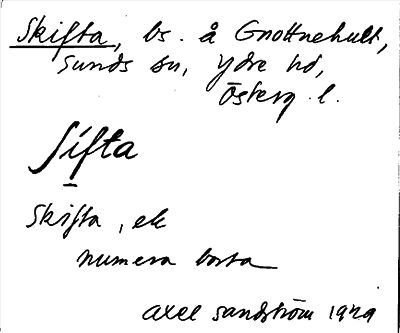 Skifta, bs. å Gnottnehult,
Sunds sn, Ydre hd,
Österg. l.
Sifta
Skifta, ek
numera borta
Axel Sandström 1929